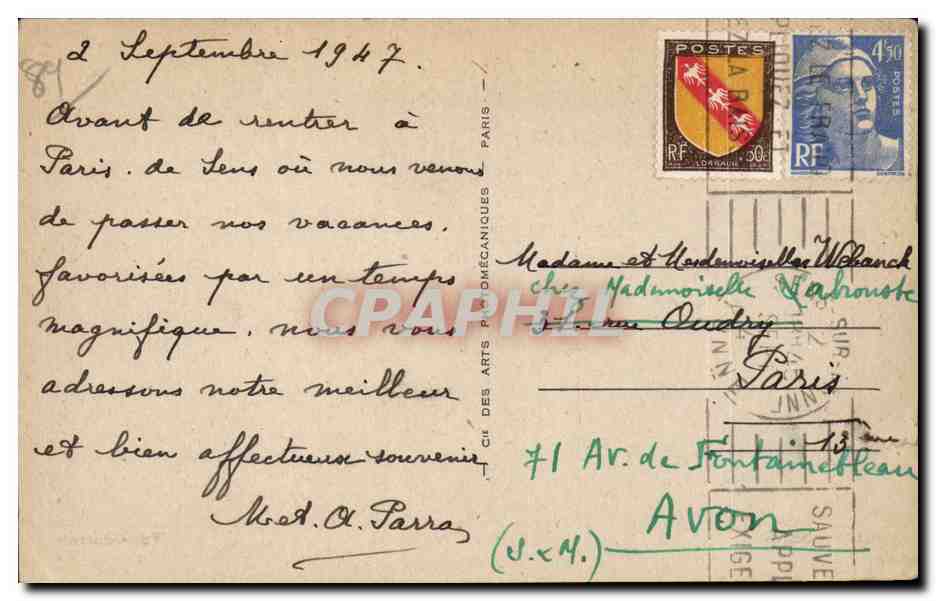 84
2 Septembre 1947.
Avant de rentrer à
Paris. de Sens où nous venons
de passer nos vacances.
favorisées par un temps
magnifique. nous vous
adressons notre meilleur
et bien affectueux souvenir
M et A. Parra
CIE DES ARTS PHOTOMÉCANIQUES PARIS —
POSTES
RF LORRAINE 50c
4F50
POSTES
RF
Madame et Mesdemoiselles
chez Mademoiselle Labrouste
rue Oudry
Paris
13ème
71 Av. de Fontainebleau
AVON
(S. & M.)
CPARPHIL
SAUVE
APPL
EXIGE